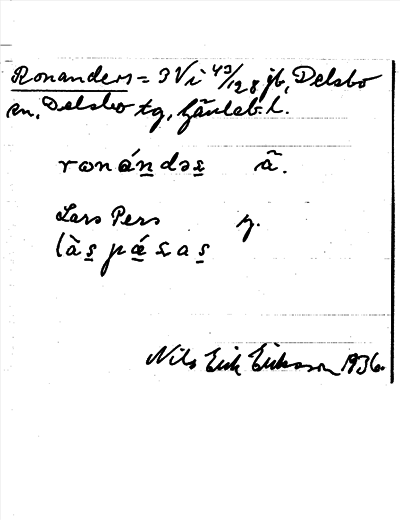 Ronanders = 3 Vi 43/128 jb, Delsbo
sn, Delsbo tg, Gävleb. l.
ronándəs ã.
Lars Pers y.
làs pǽsas
Nils Erik Eriksson 1936.